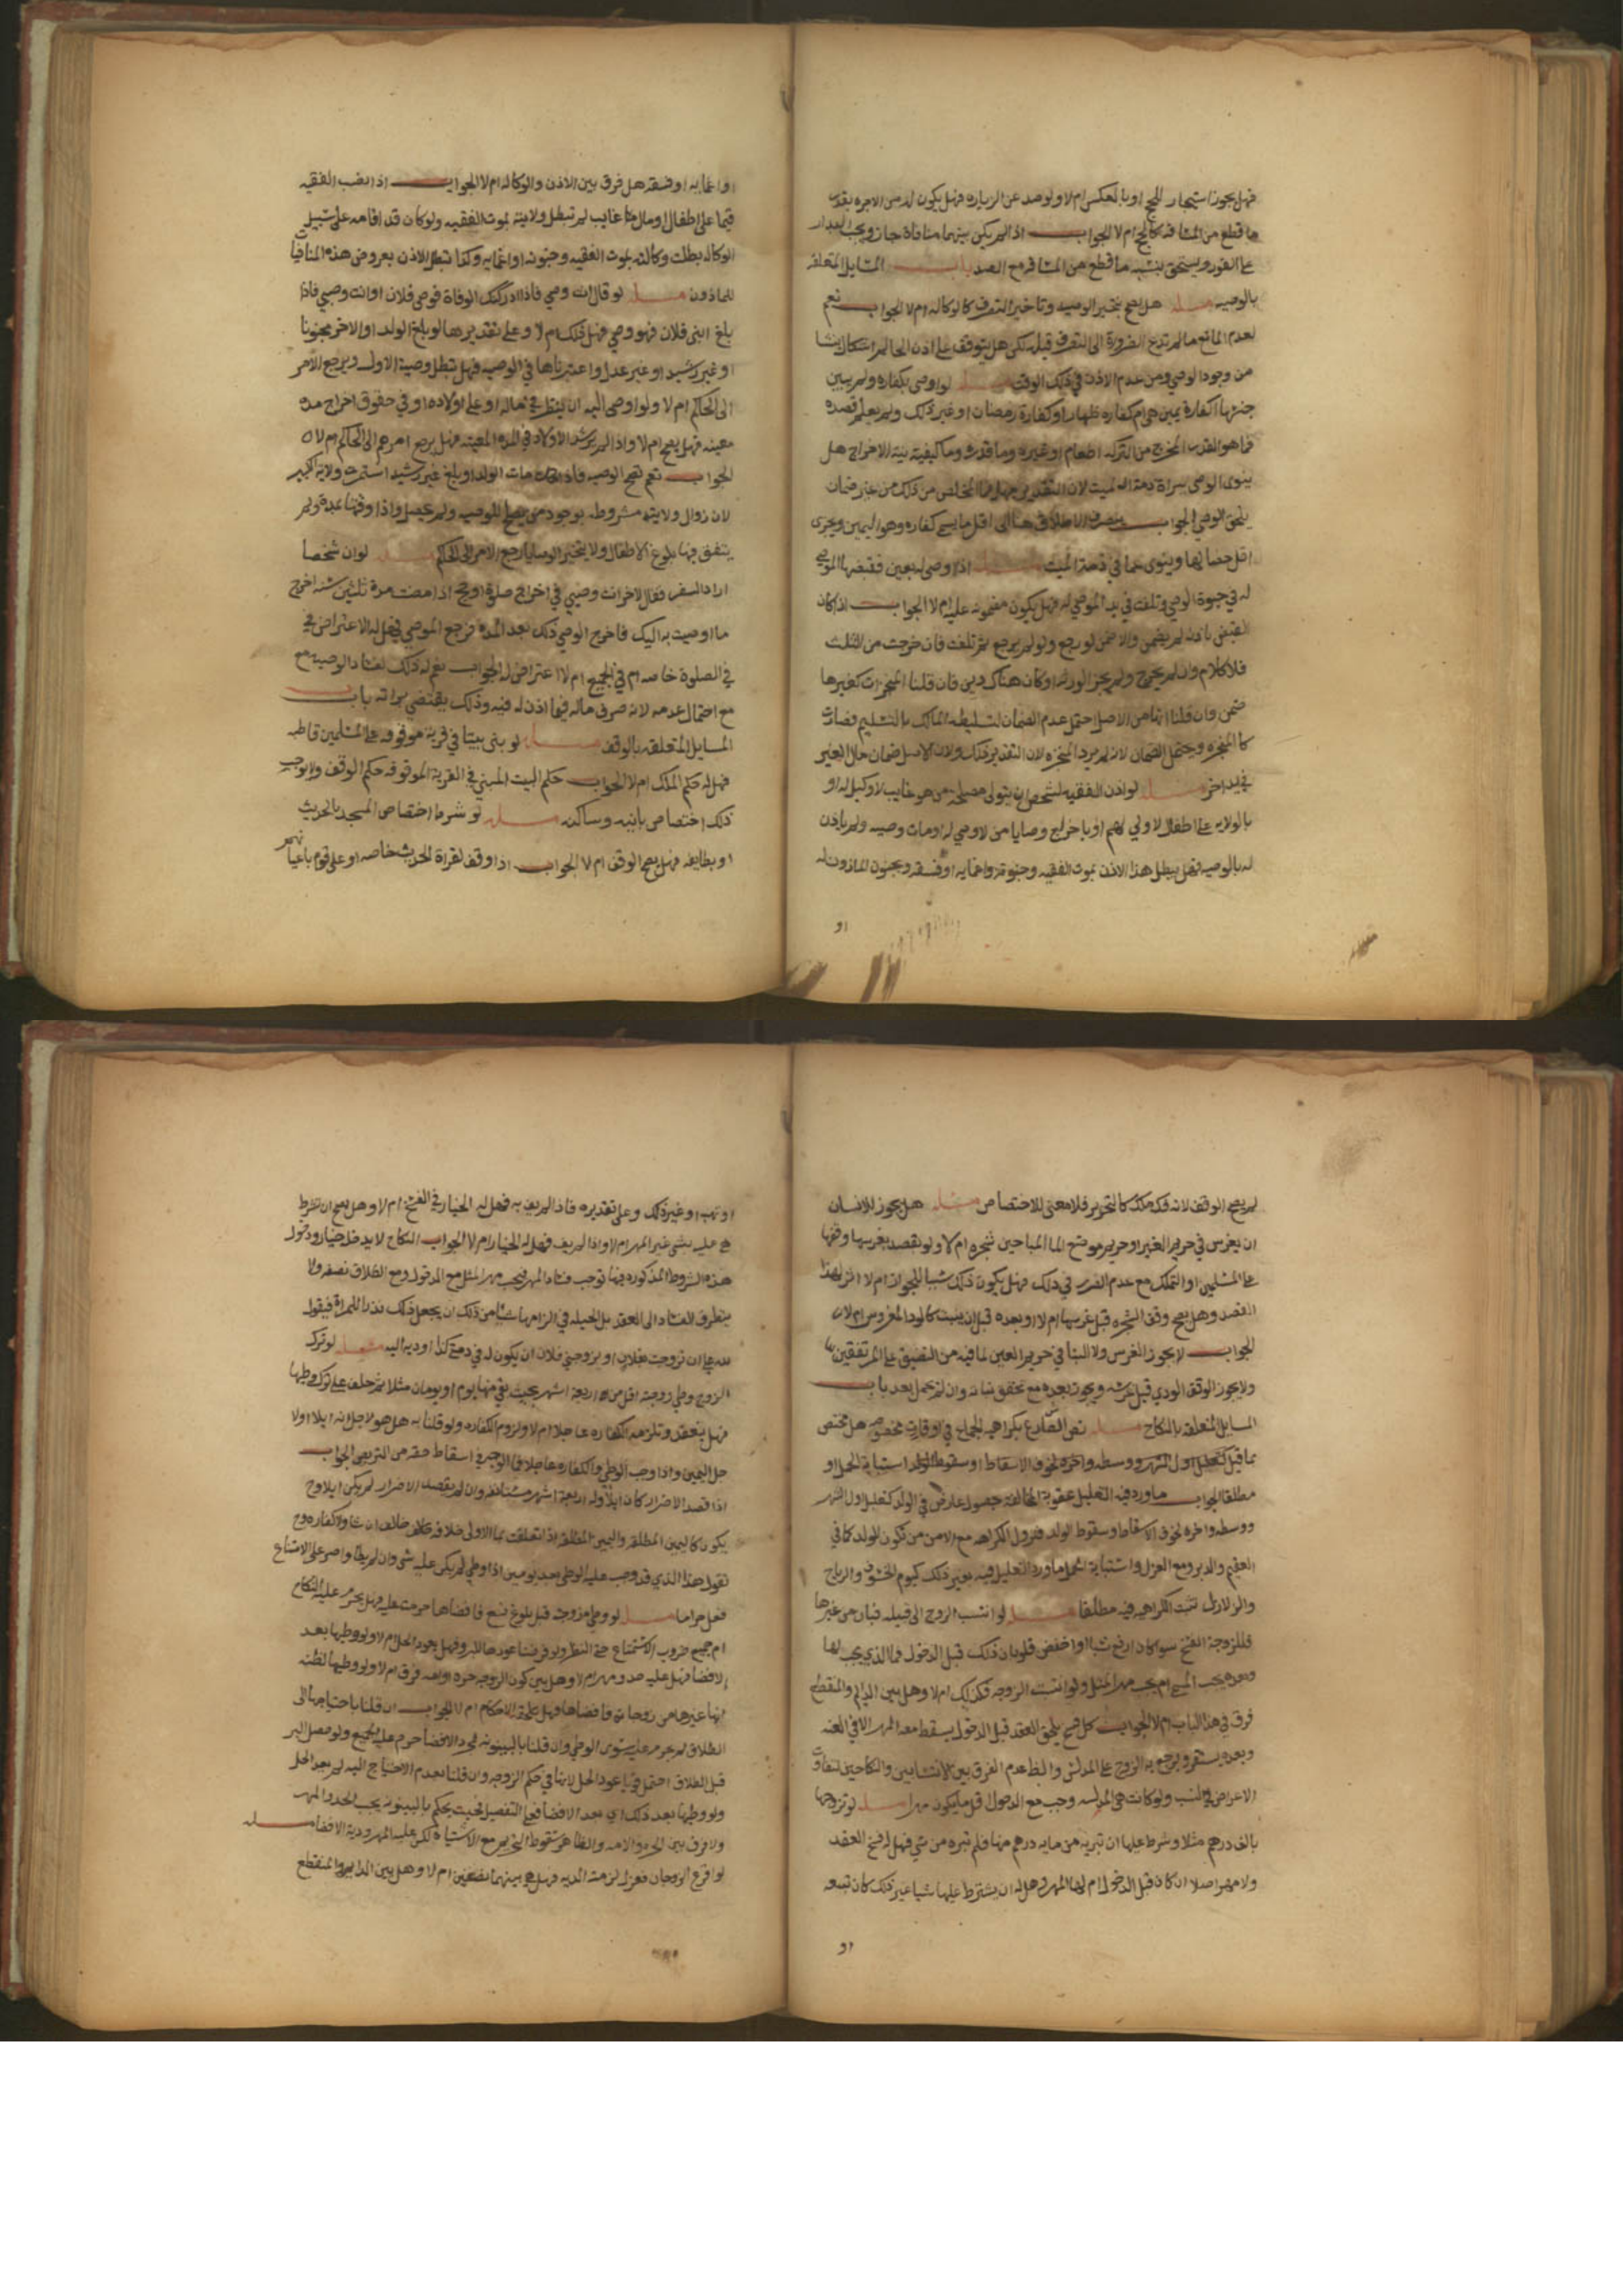 فهل يجوز استيجار للحج او بالعكس ام لا ولو صد عن الزياره فهل يكون له من الاجره بقدر
ما قطع من المسافه كالحج ام لا الجواب اذا لم يكن بينهما منافاة جاز ويجب البدار
على الفور ويستحق بنسبه ما قطع من المسافه مع الصد باب المسايل المتعلقه
بالوصيه مسله هل يصح تنجيز الوصيه وتاخير التصرف كالوكاله ام لا الجواب نعم
لعدم المانع ما لم تدع الضرورة الى التصرف قبله لكن هل يتوقف على اذن الحاكم اشكال ينشا
من وجود الوصي ومن عدم الاذن في ذلك الوقت مسله لو اوصى بكفاره ولم يبين
جنسها اكفارة يمين هي ام كفاره ظهار او كفارة رمضان او غير ذلك ولم يعلم قصده
فما هو القدر المخرج من التركه اطعام او غيره وما قدره وما كيفية نية الاخراج هل
ينوى الوصي براة ذمة الميت لان التقدير جهل فما المخلص من ذلك من غير ضمان
يلحق الوصي الجواب ينصرف الاطلاق هنا الى اقل ما يسمى كفاره وهو اليمين ويجزى
اقل خصالها وينوى عما في ذمة الميت مسله اذا وصى له بعين فقبضها الموصى
له في حيوة الوصي وتلفت في يد الموصى له فهل يكون مضمونه عليه ام لا الجواب اذا كان
القبض باذن لم يضمن والا ضمن لو رجع ولو لم يرجع ثم تلفت فان خرجت من الثلث
فلا كلام وان لم يخرج ولم يجز الورثه او كان هناك دين فان قلنا المنجزات كغيرها
ضمن وان قلنا انها من الاصل احتمل عدم الضمان لتسليطه المالك بالتسليم فصارت
كالمنجزه ويحتمل الضمان لانه لم يرد المنجزه لان التقدير ذلك ولان الاصل ضمان مال الغير
في يد اخر مسله لو اذن الفقيه لشخص ان يتولى مصلحة من هو غايب لا وكيل له او
بالولايه على اطفال لا ولي لهم او باخراج وصايا من لا وصي له او مات وصيه ولم ياذن
له بالوصيه فهل يبطل هذا الاذن بموت الفقيه وجنونه واغمايه او فسقه وبجنون الماذون له
او
او اغمايه او فسقه هل فرق بين الاذن والوكاله ام لا الجواب اذا نصب الفقيه
قيما على اطفال او مال غايب لم تبطل ولايته بموت الفقيه ولو كان قد اقامه على سبيل
الوكاله بطلت وكالته بموت الفقيه وجنونه او اغمايه وكذا تبطل الاذن بعروض هذه المنافيات
للماذون مسله لو قال انت وصي فاذا ادركتك الوفاة فوصي فلان او انت وصيي فاذا
بلغ ابني فلان فهو وصي فهل ذلك ام لا وعلى تقديرها لو بلغ الولد او الاخر مجنونا
او غير رشيد او غير عدل واعتبرناها في الوصيه فهل تبطل وصية الاول ويرجع الامر
الى الحاكم ام لا ولو اوصى اليه ان ينظر في ماله او على اولاده او في حقوق اخراج مده
معينه فهل يصح ام لا واذا لم يرشد الاولاد في المده المعينه فهل يرجع امرهم الى الحاكم ام لا
الجواب نعم تصح الوصيه فاذا مات الولد او بلغ غير رشيد استمرت ولاية الكبير
لان زوال ولايته مشروطه بوجود من يصلح للوصيه ولم يحصل واذا وقتها بمدة ولم
يتفق فيها بلوغ الاطفال ولا تنجيز الوصايا رجع الامر الى الحاكم مسله لو ان شخصا
اراد السفر فقال لاخر انت وصيي في اخراج صلوة او حج اذا مضت مدة ثلثين سنه اخرج
ما اوصيت به اليك فاخرج الوصي ذلك بعد المده فرجع الموصي فهل له الاعتراض في
في الصلوة خاصه ام في الجميع ام لا اعتراض له الجواب نعم له ذلك لفساد الوصيه مع
مع احتمال عدمه لانه صرف ماله فيما اذن له فيه وذلك يقتضي براته باب
المسايل المتعلقه بالوقف مسله لو بنى بيتا في قرية موقوفه على المسلمين قاطبه
فهل له حكم الملك ام لا الجواب حكم البيت المبني في القرية الموقوفه حكم الوقف ولا يوجب
ذلك اختصاص بانيه وساكنه مسله لو شرط اختصاص المسجد بالحديث
او بطايفه فهل يصح الوقف ام لا الجواب اذا وقف لقراة الحديث خاصه او على قوم باعيانهم
لم يصح الوقف لانه فك ملك كالتحرير فلا معنى للاختصاص مسله هل يجوز للانسان
ان يغرس في حريم الغير او حريم موضع الما المباحين شجره ام لا ولو بقصد بغرسها وقفها
على المسلمين او التملك مع عدم الضرر في ذلك فهل يكون ذلك سببا للجواز ام لا اثر لهذا
القصد وهل يصح وقف الشجره قبل غرسها ام لا او بعده قبل ان ينبت كالودا المغروس ام لا
الجواب لا يجوز الغرس ولا البنا في حريم العين لما فيه من التضيق على المرتفقين بها
ولا يجوز الوقف الودي قبل غرسه ويجوز بعده مع تحقق نباته وان لم يحمل بعد باب
المسايل المتعلقه بالنكاح مسله نص الشارع بكراهيه الجماع في اوقات مخصوصه هل مختص
بما قيل كتعليل اول الشهر ووسطه واخره لخوف الاسقاط او سقوط الولد استبانة الحمل او
مطلقا الجواب ما ورد فيه التعليل عقوبة المخالفه حصول عارض في الولد كتعليل اول الشهر
ووسطه واخره لخوف الاسقاط وسقوط الولد فتزول الكراهه مع الامن من تكون الولد كما في
العقيم والدبر ومع العزل واستبانة الحمل ما ورد التعليل فيه بغير ذلك كيوم الخسوف والرياح
والزلازل تثبت الكراهيه فيه مطلقا مسله لو انتسب الزوج الى قبيله فبان من غيرها
فللزوجة الفسخ سوا كان ارفع نسبا او اخفض فلو بان ذلك قبل الدخول فما الذي يجب لها
وبعده يجب المسمى ام يجب مهر المثل ولو انتسبت الزوجه فكذلك ام لا وهل بين الدايم والمنقطع
فرق في هذا الباب ام لا الجواب كل فسخ يلحق العقد قبل الدخول يسقط معه المهر الا في العنه
وبعده يستقر ويرجع به الزوج على المدلس والظ عدم الفرق بين الانتسابين والنكاحين لتفاوت
الاعراض في النسب ولو كانت هي المدلسه وجب مع الدخول اقل ما يكون مهرا مسله لو تزوجها
بالف درهم مثلا وشرط عليها ان تبريه من مايه درهم منها فلم تبره من شي فهل له فسخ العقد
ولا مهر اصلا ان كان قبل الدخول ام لها المهر وهل له ان يشترط عليها شيا غير ذلك كان تبيعه
او
او تهب او غير ذلك وعلى تقديره فاذا لم يف به فهل له الخيار في الفسخ ام لا وهل يصح ان تشرط
هي عليه شي غير المهر ام لا واذا لم يف فهل لها الخيار ام لا الجواب النكاح لا يدخله خيار ودخول
هذه الشروط المذكوره فيها توجب فساد المهر فيجب مهر المثل مع الدخول ومع الطلاق نصفه ولا
يتطرق الفساد الى العقد بل الحيله في الزامها شيا من ذلك ان يجعل ذلك نذرا للمراة فيقول
لله علي ان تزوجت بفلان او تزوجني فلان ان يكون له في ذمتي كذا او ديه اليه مسله لو ترك
الزوج وطي زوجته اقل من اربعة اشهر بحيث بقي منها يوم او يومان مثلا ثم حلف على ترك وطيها
فهل ينعقد وتلزمه الكفاره عاجلا ام لا ولزوم الكفاره ولو قلنا به هل هو لاجل انه ايلا او لا
جل اليمين واذا وجب الوطي والكفاره عاجلا فما الوجه في اسقاط حقه من التربص الجواب
اذا قصد الاضرار كان ايلا وله اربعة اشهر مستانفه وان لم يقصد الاضرار لم يكن ايلا وح
يكون كاليمين المطلقه واليمين المطلقه اذا تعلقت بما الاولى خلافه خالف ان شا ولا كفاره وح
نقول هذا الذي قد وجب عليه الوطي بعد يومين اذا وطي لم يكن عليه شي وان لم يطا واصر على الامتناع
فعل حراما مسله لو وطي زوجته قبل بلوغ تسع فافضاها حرمت عليه فهل يحرم عليه النكاح
ام جميع ضروب الاستمتاع حتى النظر ولو فرضنا عود حالها وفهل يعود الحل ام لا ولو وطيها بعد
الافضا فهل عليه حد ومهر ام لا وهل بين كون الزوجه حره او امه فرق ام لا ولو وطيها لظنه
انها غيرها من زوجاته فافضاها فهل تلحقه الاحكام ام لا الجواب ان قلنا باحتياجها الى
الطلاق لم يحرم عليه سوى الوطي وان قلنا بالبينونه لمجرد الافضا حرم عليه الجميع ولو حصل البر
قبل الطلاق احتمل قويا عود الحل لانها في حكم الزوجه وان قلنا بعدم الاحتياج اليه لم يعد الحل
ولو وطيها بعد ذلك اي بعد الافضا فعلى التفصيل فحيث يحكم بالبينونه يجب الحد والمهر
ولا فرق بين الحره والامه والظاهر سقوط التحريم مع الاشتباه لكن عليه المهر ودية الافضا مسله
لو اقرع الزوجان فعزل لزمته الديه فهل هي بينهما نصفين ام لا وهل بين الدايم والمنقطع